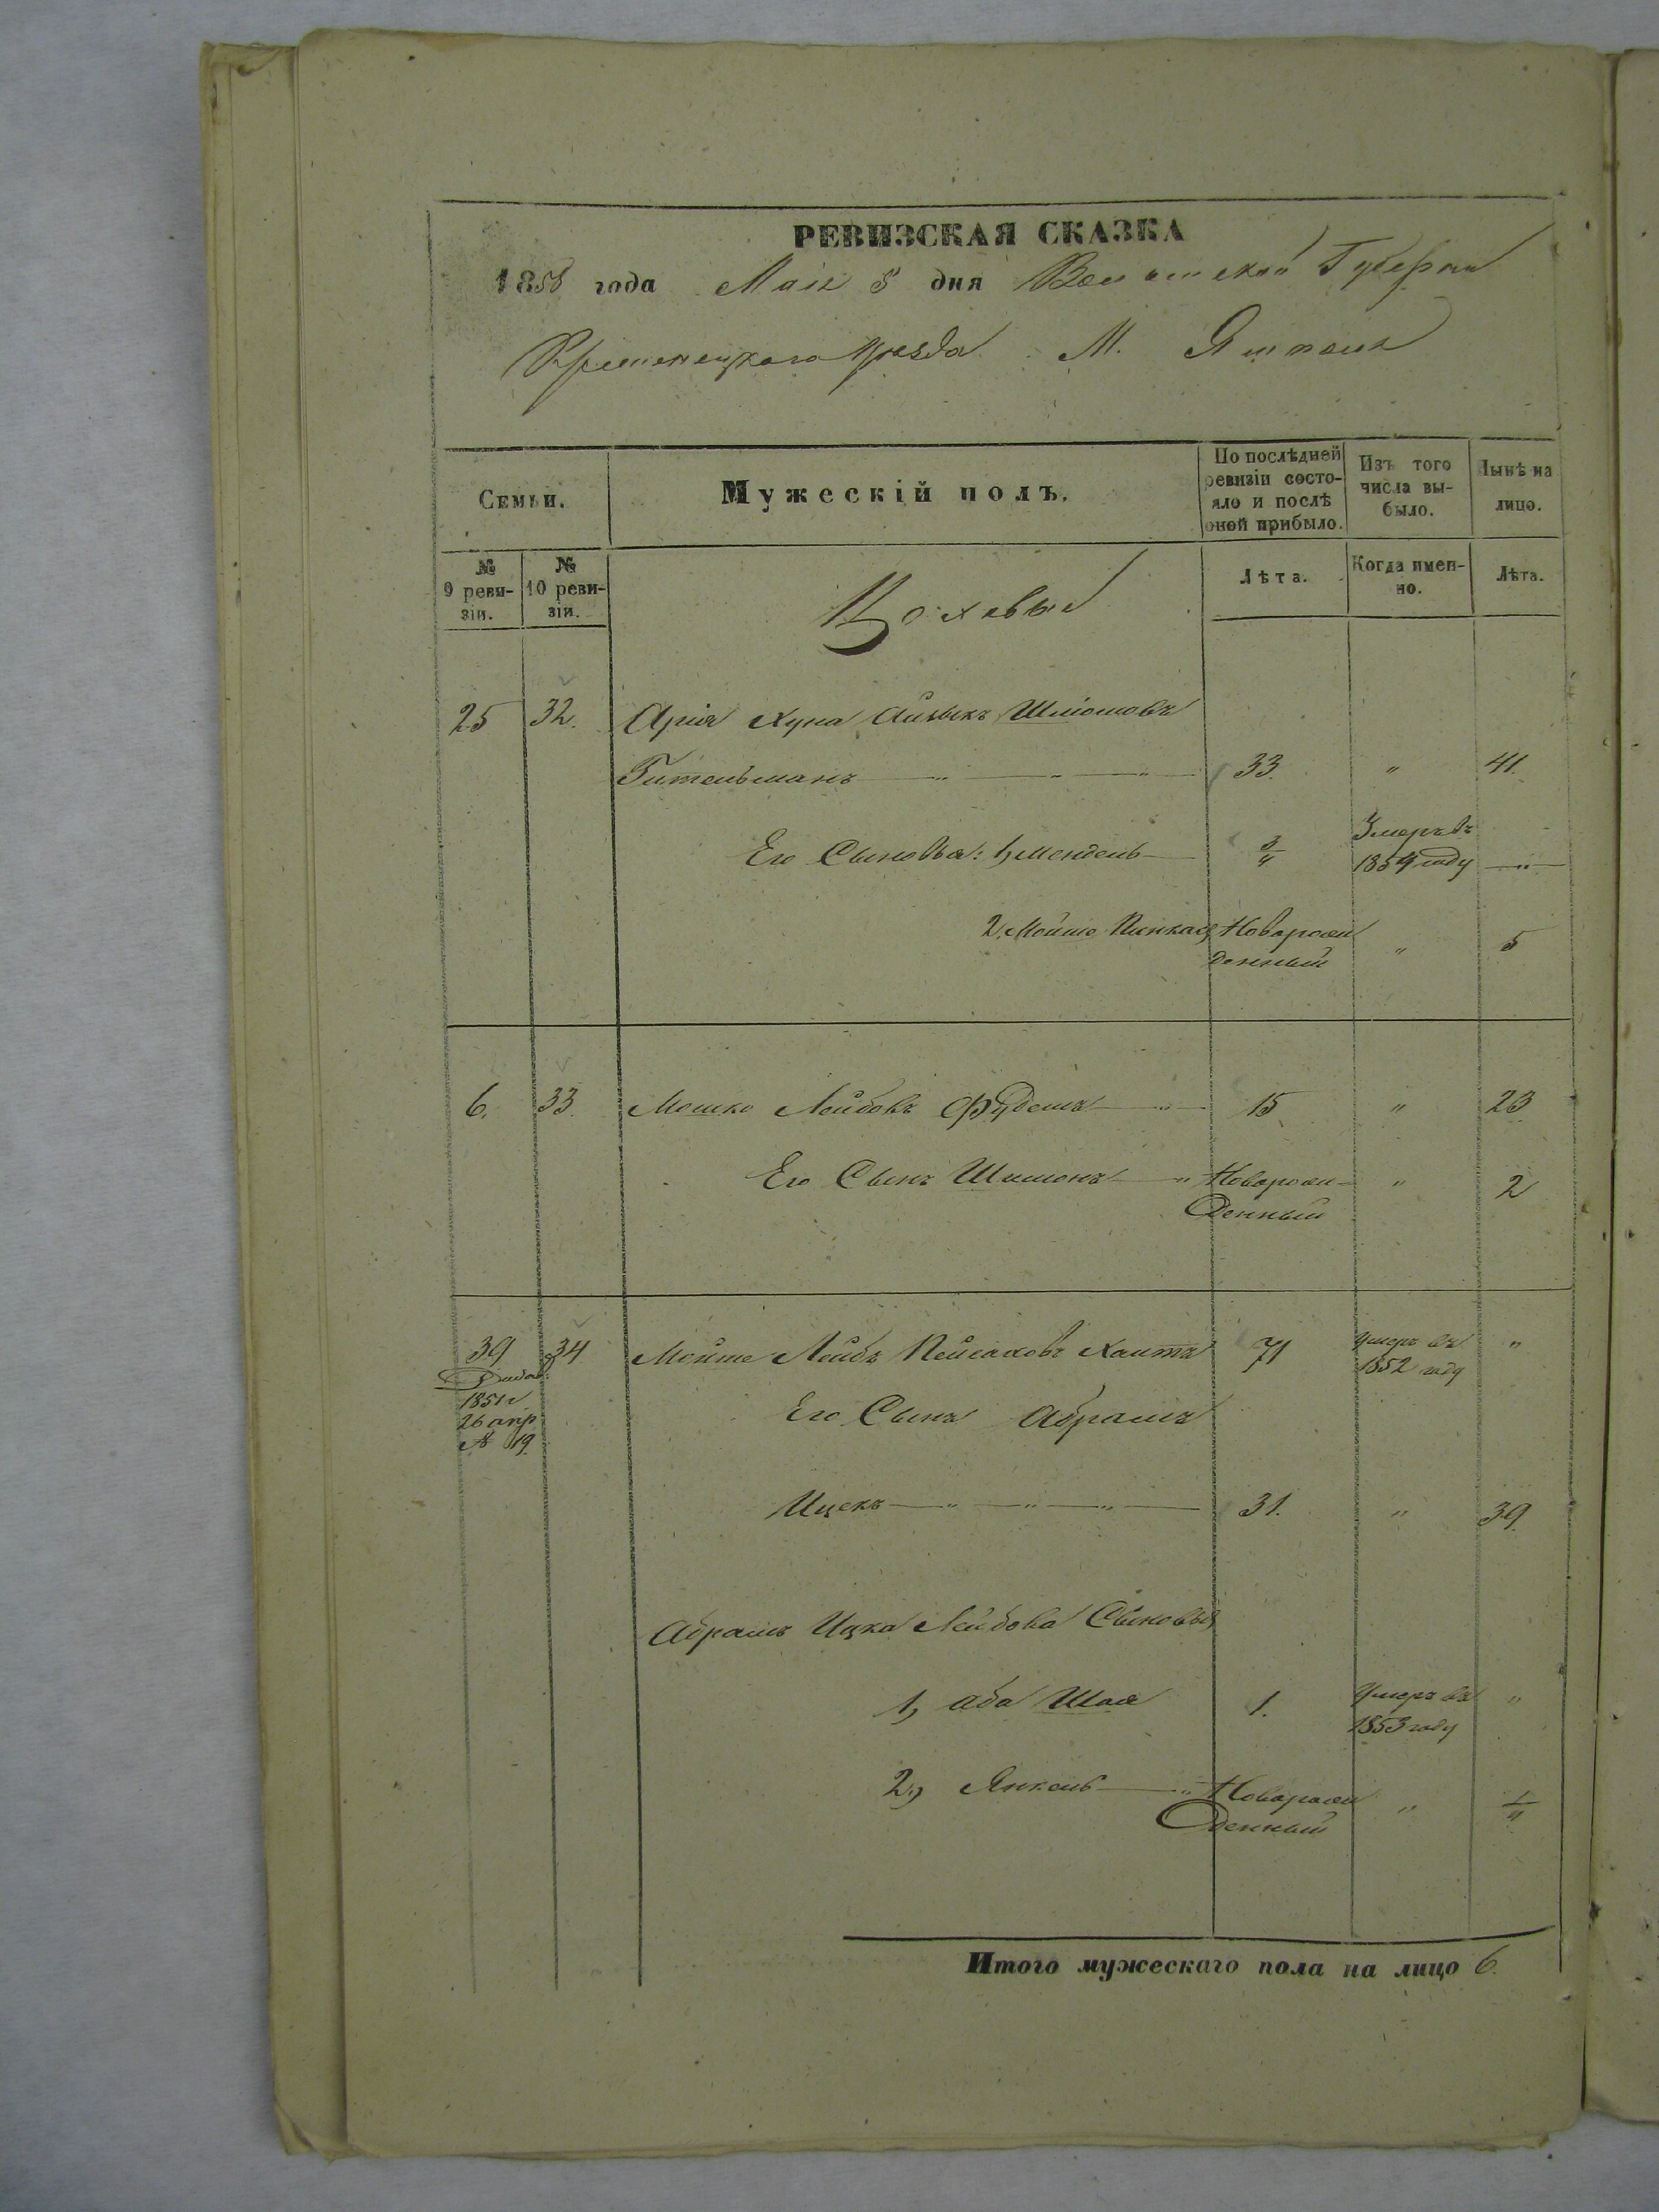 РЕВИЗСКАЯ СКАЗКА
1858 года Маія 8 дня Волынской Губерніи
Кременецкаго Уѣзда М. Ямполя
Семьи.
Мужескій полъ.
По послѣдней ревизіи состояло и послѣ оной прибыло.
Изъ того числа выбыло.
Нынѣ на лицо.
№ 9 ревизіи.
№ 10 ревизіи.
Лѣта.
Когда именно.
Лѣта.
25 32. Арія Хуна Айзыкъ Шліомовъ
Гительманъ 33. " 41.
Его Сыновья: 1, Мендель 3/4 Умеръ въ 1854 году "
2, Мойше Пинкасъ Новорожденный " 5
6. 33. Мошко Лейбовъ 15 " 23
Его Сынъ Шимонъ " Новорожденный " 2
39 34 Мойше Лейбъ Пейсаховъ 71 Умеръ въ 1852 году "
1851 г
26 апр
№ 19.
Его Сынъ Абрамъ
Ицекъ 31. " 39.
Абрамъ Ицка Лейбова Сыновья
1, Аба Шая 1. Умеръ въ 1853 году "
2, Янкель " Новорожденный " 1/"
Итого мужескаго пола на лицо 6.